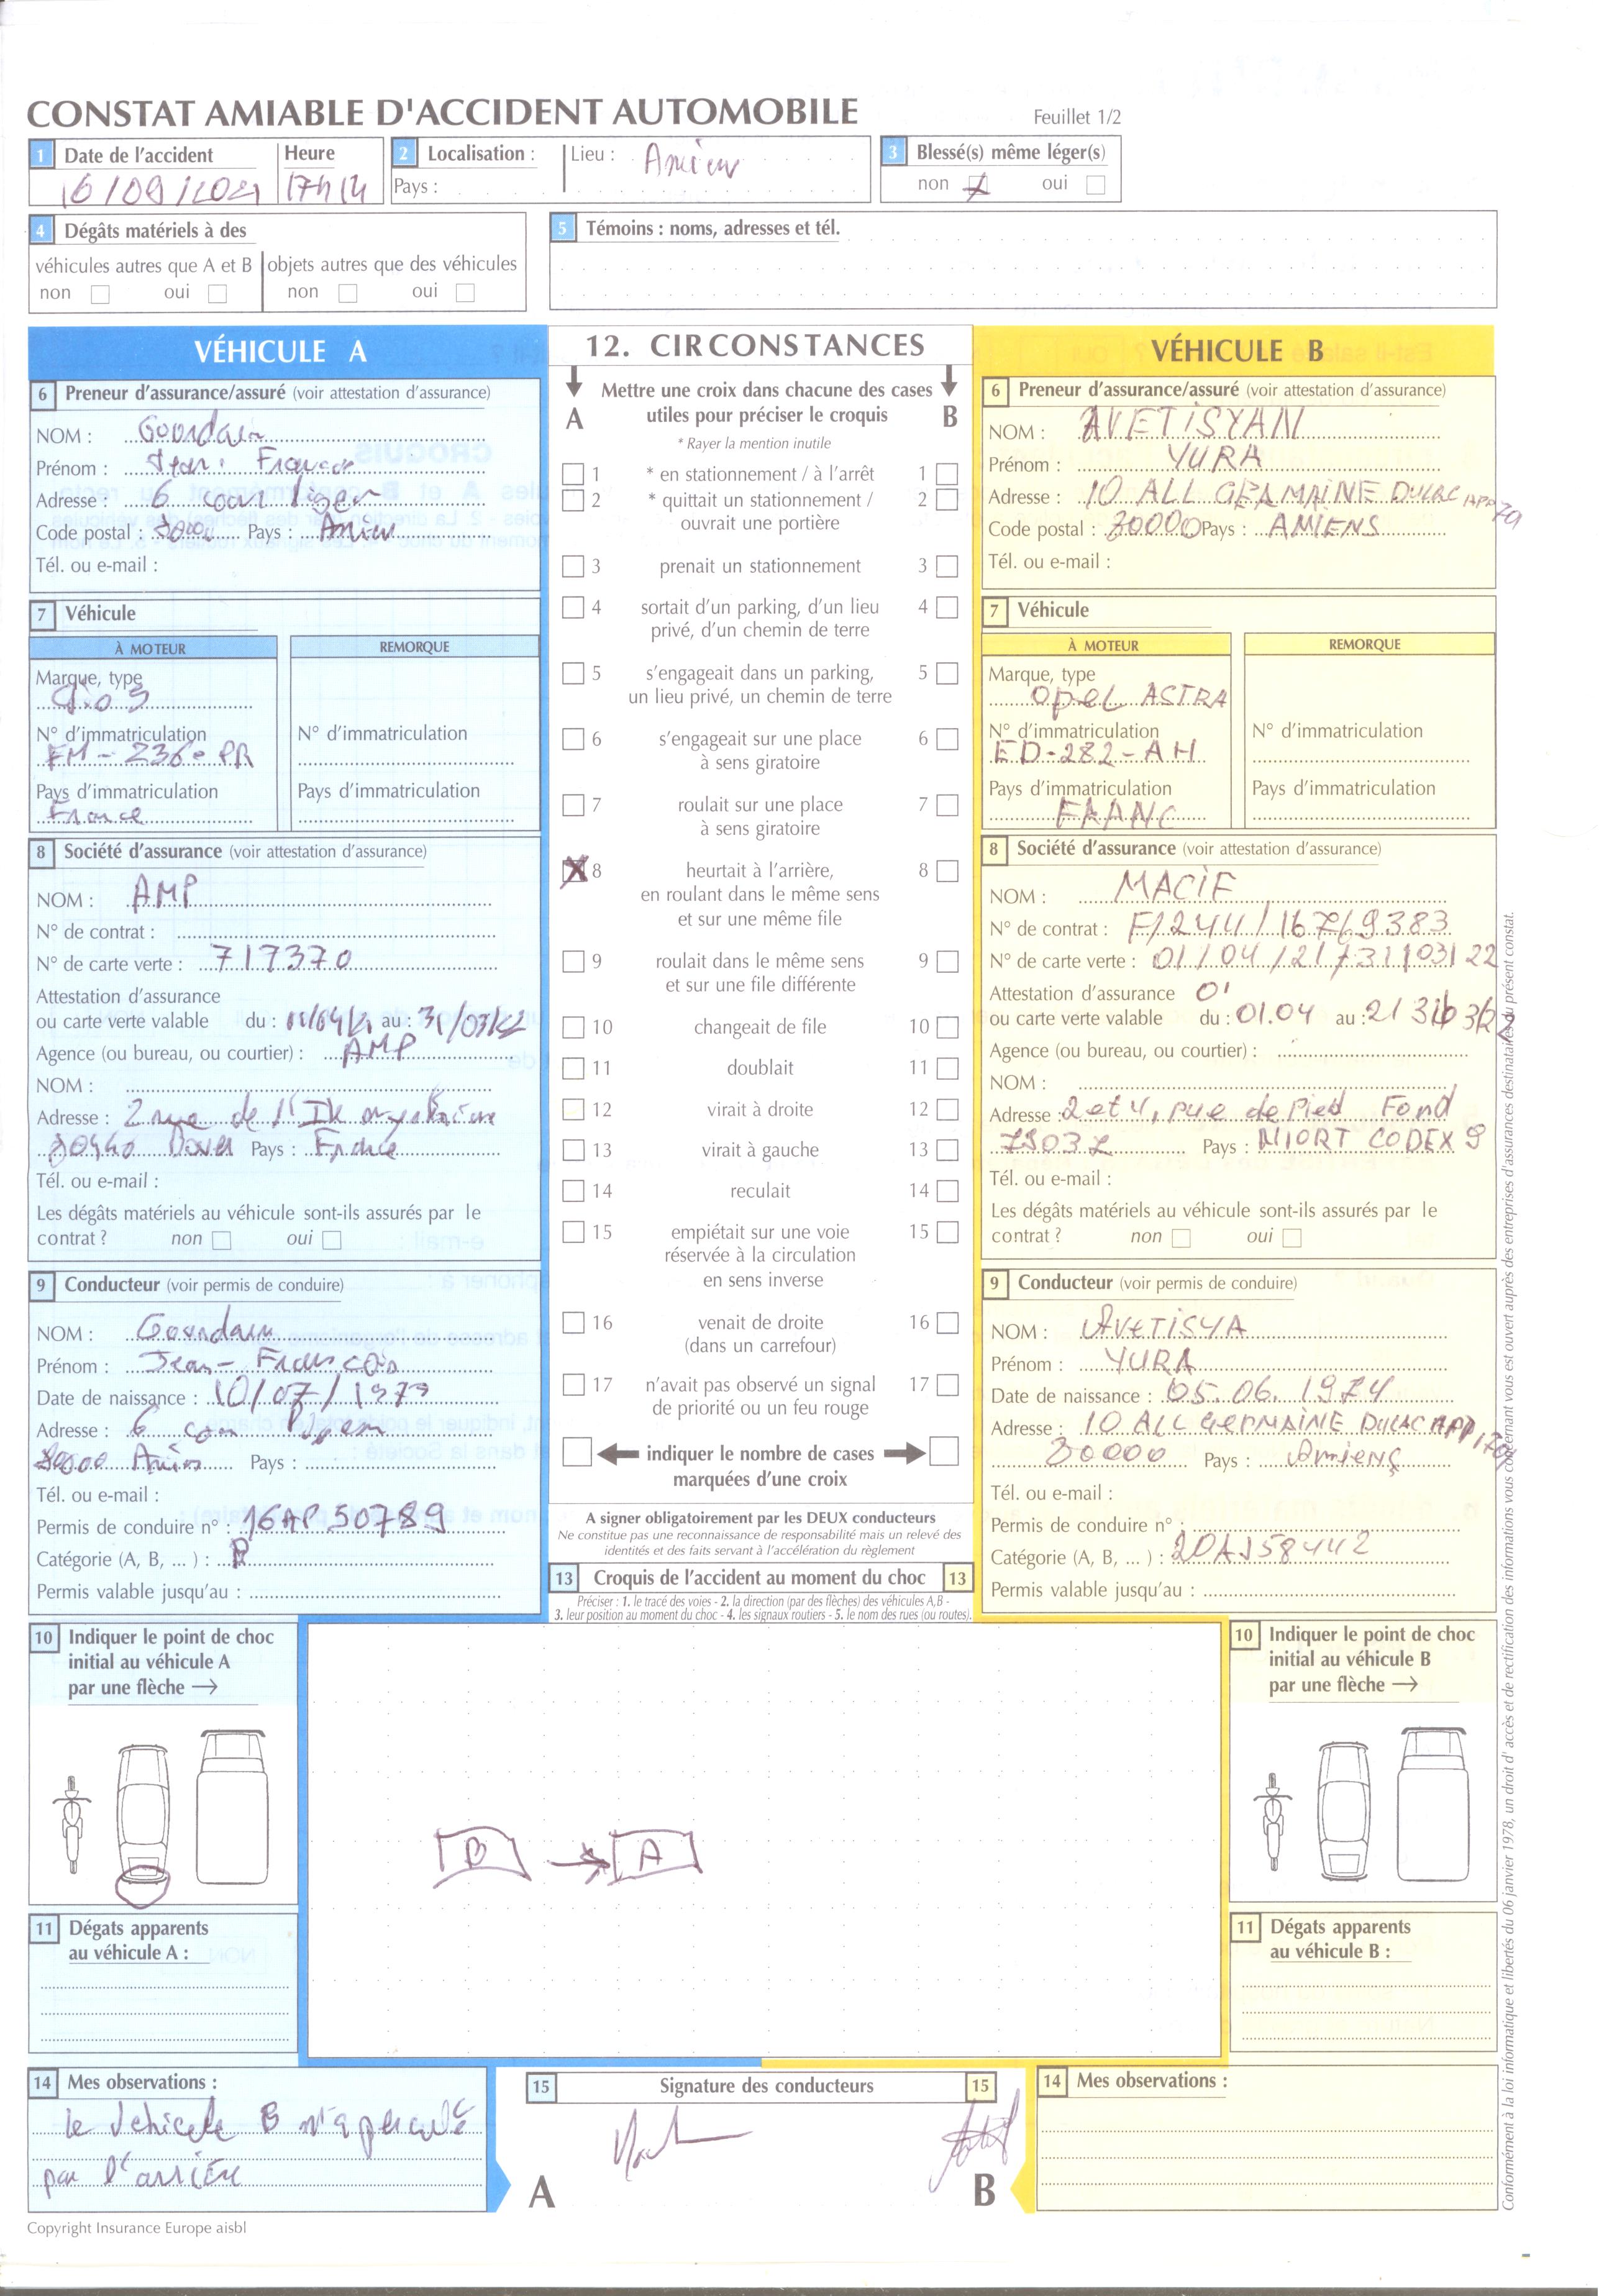 CONSTAT AMIABLE D'ACCIDENT AUTOMOBILE
Feuillet 1/2
1 Date de l'accident Heure
16/09/2021 17h14
2 Localisation : Lieu : Amiens
Pays :
3 Blessé(s) même léger(s)
non oui
4 Dégâts matériels à des
véhicules autres que A et B objets autres que des véhicules
non oui non oui
5 Témoins : noms, adresses et tél.
VÉHICULE A
6 Preneur d'assurance/assuré (voir attestation d'assurance)
NOM : Gourdain
Prénom :
Adresse : 6
Code postal : 80000 Pays : Amiens
Tél. ou e-mail :
7 Véhicule
À MOTEUR REMORQUE
Marque, type
N° d'immatriculation N° d'immatriculation
- 236 - PR
Pays d'immatriculation Pays d'immatriculation
France
8 Société d'assurance (voir attestation d'assurance)
NOM : AMP
N° de contrat :
N° de carte verte : 717370
Attestation d'assurance
ou carte verte valable du : au :
Agence (ou bureau, ou courtier) : AMP
NOM :
Adresse : 2 rue de
Pays : France
Tél. ou e-mail :
Les dégâts matériels au véhicule sont-ils assurés par le
contrat ? non oui
9 Conducteur (voir permis de conduire)
NOM : Gourdain
Prénom : Jean - François
Date de naissance : 10/07/1979
Adresse : 6
80000 Amiens Pays :
Tél. ou e-mail :
Permis de conduire n° : 16AP50789
Catégorie (A, B, ... ) : B
Permis valable jusqu'au :
10 Indiquer le point de choc
initial au véhicule A
par une flèche →
11 Dégats apparents
au véhicule A :
14 Mes observations :
le vehicule B m'a percuté
par l'arrière
12. CIRCONSTANCES
Mettre une croix dans chacune des cases
A utiles pour préciser le croquis B
* Rayer la mention inutile
1 * en stationnement / à l'arrêt 1
2 * quittait un stationnement / 2
ouvrait une portière
3 prenait un stationnement 3
4 sortait d'un parking, d'un lieu 4
privé, d'un chemin de terre
5 s'engageait dans un parking, 5
un lieu privé, un chemin de terre
6 s'engageait sur une place 6
à sens giratoire
7 roulait sur une place 7
à sens giratoire
X 8 heurtait à l'arrière, 8
en roulant dans le même sens
et sur une même file
9 roulait dans le même sens 9
et sur une file différente
10 changeait de file 10
11 doublait 11
12 virait à droite 12
13 virait à gauche 13
14 reculait 14
15 empiétait sur une voie 15
réservée à la circulation
en sens inverse
16 venait de droite 16
(dans un carrefour)
17 n'avait pas observé un signal 17
de priorité ou un feu rouge
indiquer le nombre de cases
marquées d'une croix
A signer obligatoirement par les DEUX conducteurs
Ne constitue pas une reconnaissance de responsabilité mais un relevé des
identités et des faits servant à l'accélération du règlement
13 Croquis de l'accident au moment du choc 13
Préciser : 1. le tracé des voies - 2. la direction (par des flèches) des véhicules A,B -
3. leur position au moment du choc - 4. les signaux routiers - 5. le nom des rues (ou routes).
B → A
15 Signature des conducteurs 15
A B
VÉHICULE B
6 Preneur d'assurance/assuré (voir attestation d'assurance)
NOM : AVETISYAN
Prénom : YURA
Adresse : 10 ALL GERMAINE DULAC APP
Code postal : 80000 Pays : AMIENS
Tél. ou e-mail :
7 Véhicule
À MOTEUR REMORQUE
Marque, type
OPEL ASTRA
N° d'immatriculation N° d'immatriculation
ED-282-AH
Pays d'immatriculation Pays d'immatriculation
FRANC
8 Société d'assurance (voir attestation d'assurance)
NOM : MACIF
N° de contrat :
N° de carte verte : 01/04/21/31/03/22
Attestation d'assurance
ou carte verte valable du : 01.04 au :
Agence (ou bureau, ou courtier) :
NOM :
Adresse : 2 et 4, rue de Pied Fond
Pays : NIORT CODEX 9
Tél. ou e-mail :
Les dégâts matériels au véhicule sont-ils assurés par le
contrat ? non oui
9 Conducteur (voir permis de conduire)
NOM : AVETISYA
Prénom : YURA
Date de naissance : 05.06.1974
Adresse : 10 ALL GERMAINE DULAC APP
80000 Pays : Amiens
Tél. ou e-mail :
Permis de conduire n° :
Catégorie (A, B, ... ) : 20AJ58442
Permis valable jusqu'au :
10 Indiquer le point de choc
initial au véhicule B
par une flèche →
11 Dégats apparents
au véhicule B :
14 Mes observations :
Copyright Insurance Europe aisbl